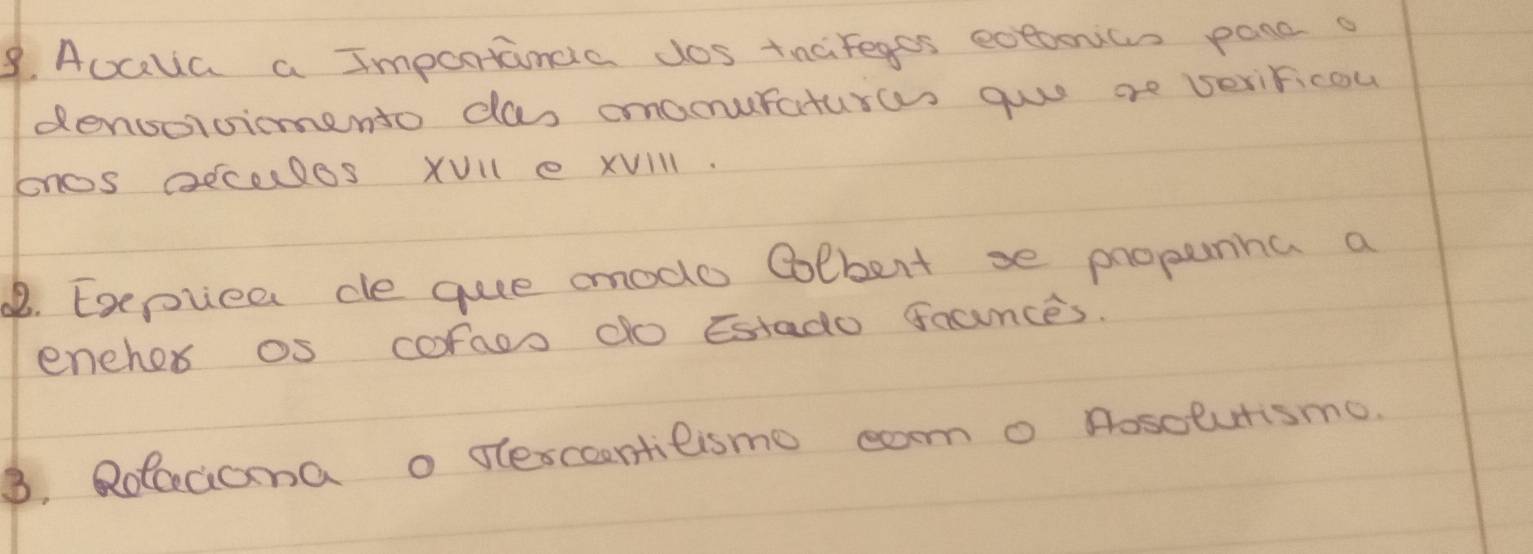 1. Avalia a Importância dos tráfegos coloniais para o
denvolvimento das manufaturas que se verificou
nos séculos XVII e XVIII.
2. Explica de que modo Colbert se propunha a
encher os cofres do Estado francês.
3. Relaciona o Mercantilismo com o Absolutismo.